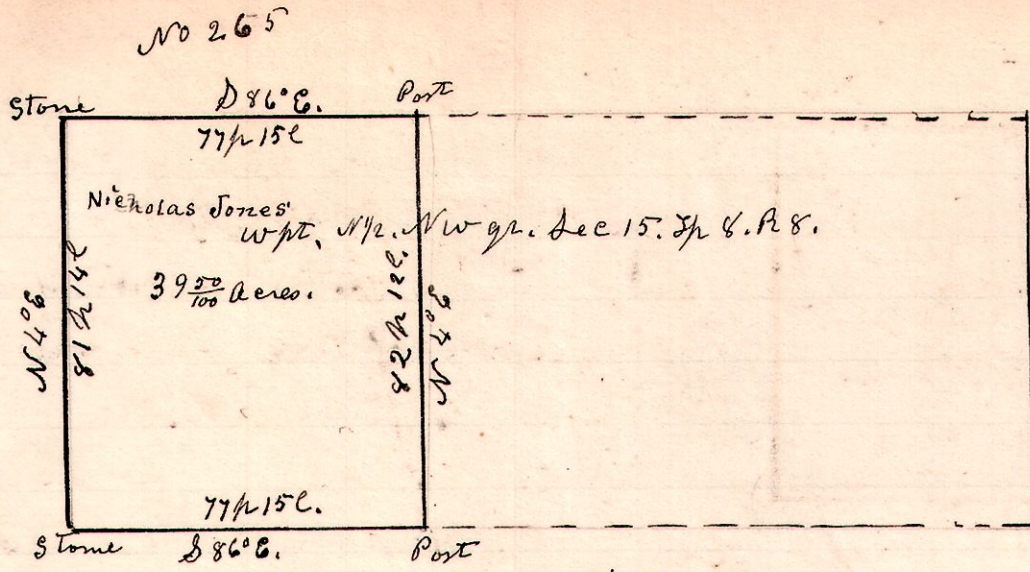 No 265
Stone S 86° E. Post
77p 15l
Nicholas Jones'
w pt. N½. N w qr. Sec 15. Tp 8. R 8.
39 50/100 Acres.
N 4° E
81p 14l
82p 12l.
N 4° E
77p 15l.
Stone S 86° E. Post